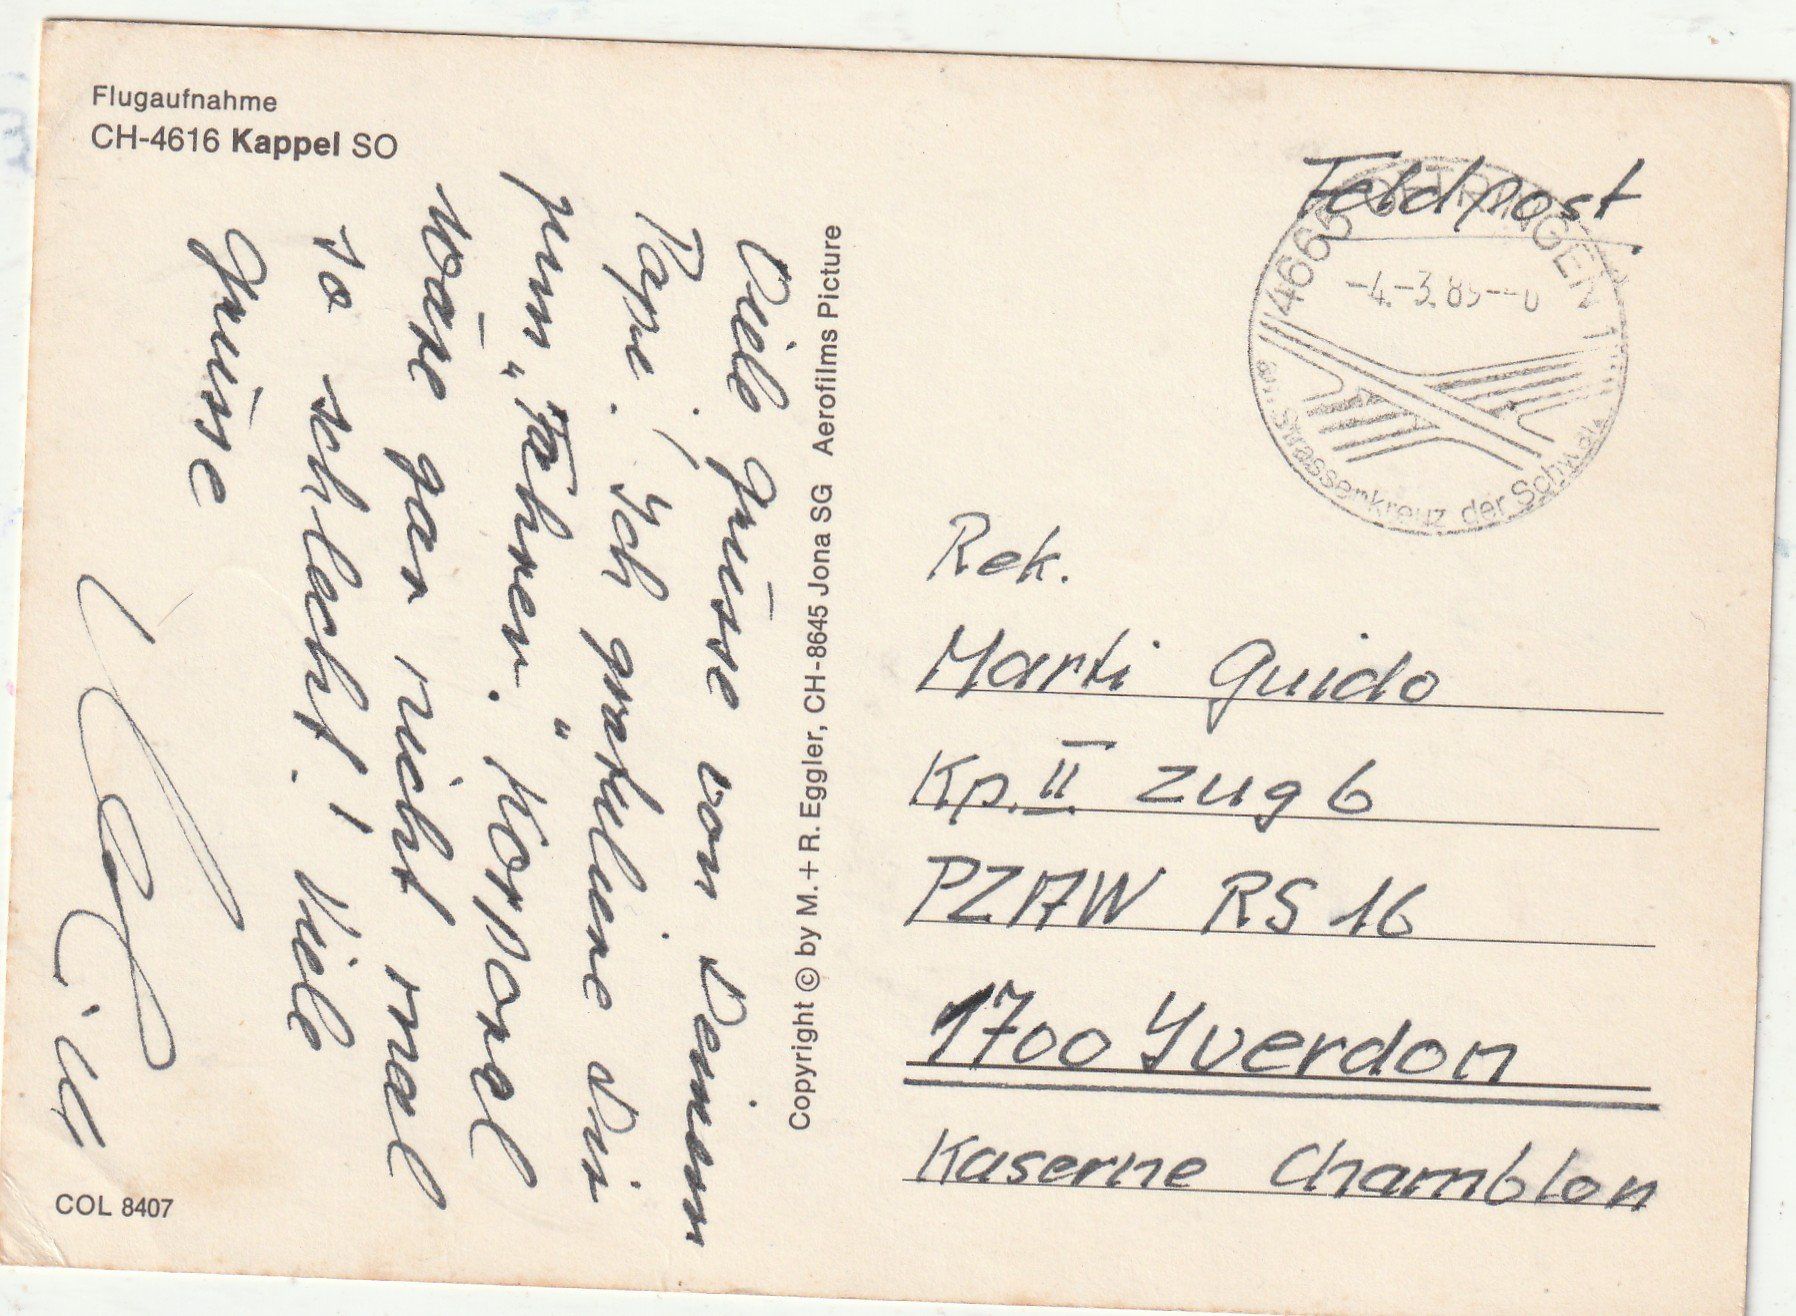 Flugaufnahme
CH-4616 Kappel SO
Viele Grüsse von Deinem
Papi! Ich gratuliere Dir
zum „Fähren“. Korporal
wäre gar nicht mal
so schlecht! Viele
Grüsse
COL 8407
Copyright © by M. + R. Eggler, CH-8645 Jona SG Aerofilms Picture
Feldpost
4665 OFTRINGEN
-4.-3.85--
Strassenkreuz der Schweiz
Rek.
Marti Guido
Kp. II Zug 6
PZAW RS 16
1700 Yverdon
Kaserne Chamblon